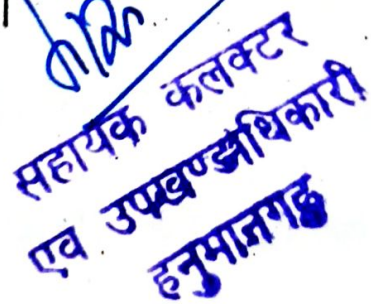 सहायक कलक्टर
एव उपखण्डाधिकारी
हनुमानगढ़